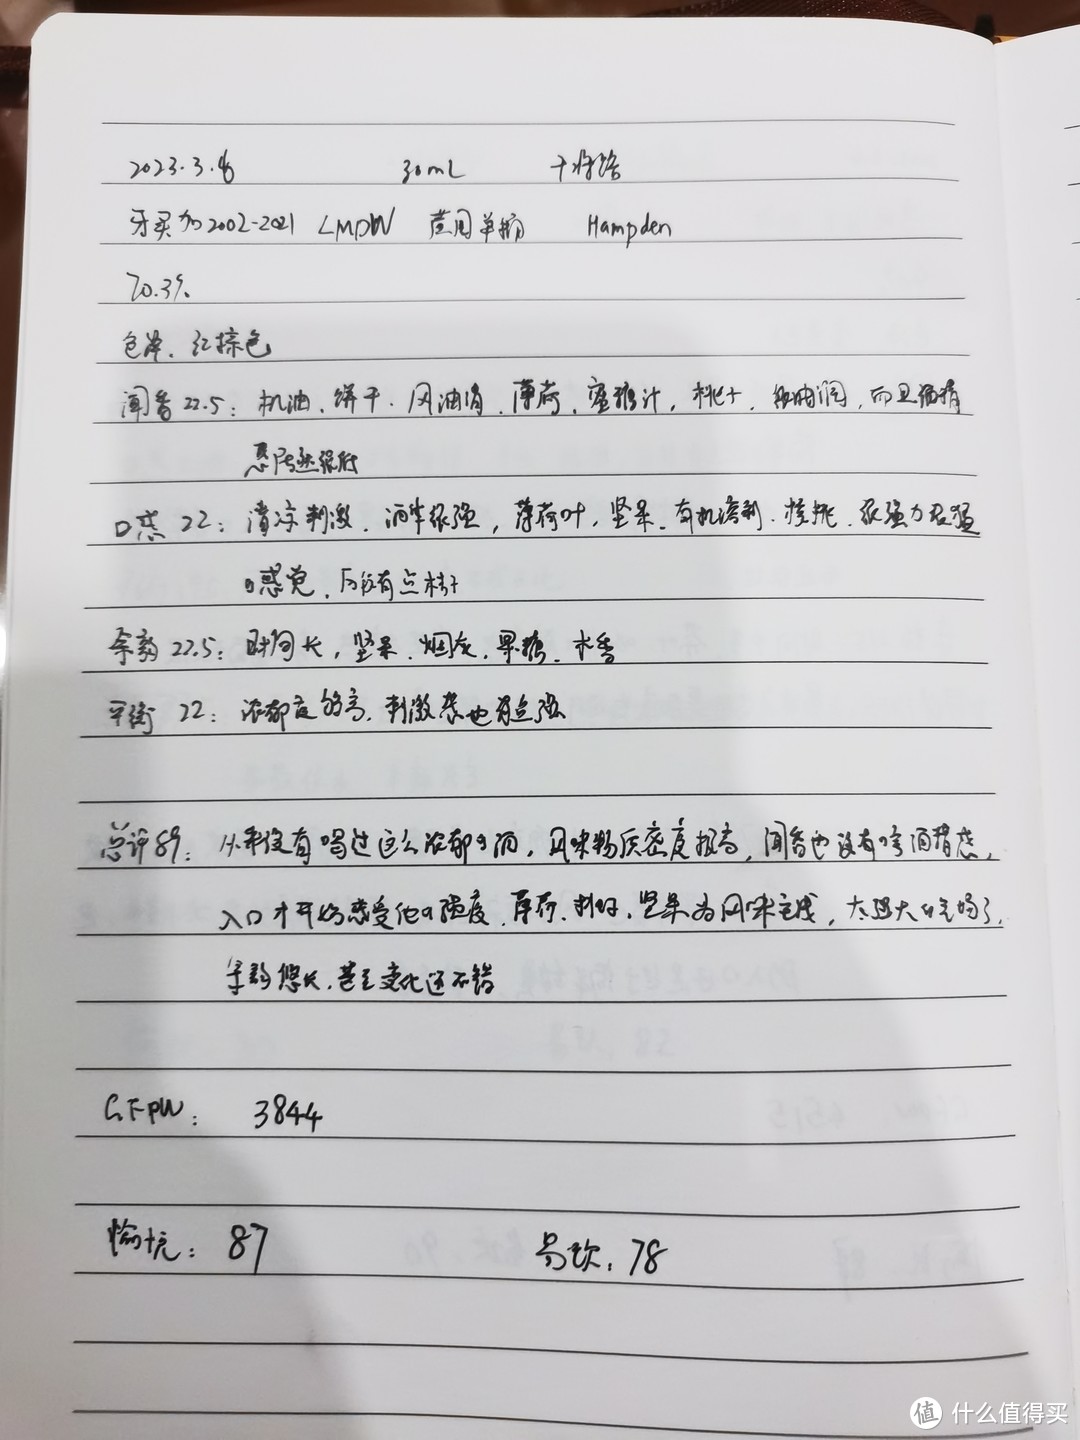 2023.3.  30mL
牙买加2002-2021 LMDW 蓝图单桶 Hampden
70.3%
色泽、红棕色
闻香22.5：机油、饼干、风油精、薄荷、蜜糖汁，桃子，很油润，而且酒精
感居然很低
口感 22：清凉刺激、酒体很强，薄荷叶，坚果、有机溶剂、核桃、很强力很猛
口感觉、
余韵22.5：时间长，坚果、烟灰、果糖、木香
平衡 22：浓郁度够高、刺激感也有点强
总评89：从来没有喝过这么浓郁的酒，风味物质密度极高，闻香也没有啥酒精感，
入口才开始感受他的强度、薄荷、坚果为风味主线，太强大的气场了，
余韵悠长，甚至变化还不错
CFPW： 3844
愉悦：87 易饮：78
值 什么值得买